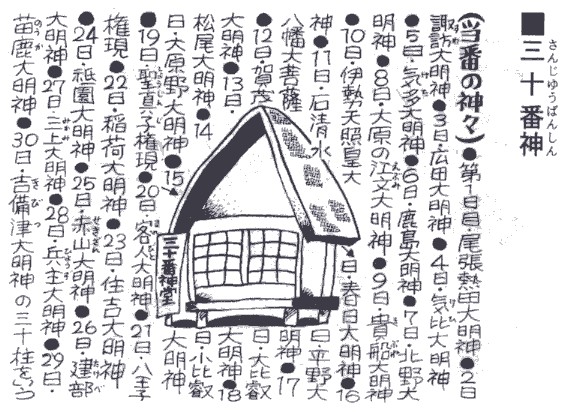 ■三十番神
さんじゅうばんしん
(当番の神々)●第1日目・尾張熱田大明神●2日
諏訪大明神●3日・広田大明神●4日・気比大明神
●5日・気多大明神●6日・鹿島大明神●7日・北野大
明神●8日・大原の江文大明神●9日・貴船大明神
●10日・伊勢天照皇大
神●11日・石清水
八幡大菩薩
●12日・賀茂
大明神●13日・
松尾大明神●14
日・大原野大明神●15
日・春日大明神●16
日・平野大
明神●17
日・大比叡
大明神●18
日・小比叡
大明神
●19日・聖真子権現●20日・客人大明神●21日・八王子
権現●22日・稲荷大明神●23日・住吉大明神
●24日・祇園大明神●25日・赤山大明神●26日・建部
大明神●27日・三上大明神●28日・兵主大明神●29日・
苗鹿大明神●30日・吉備津大明神の三十柱をいう
三十番神堂